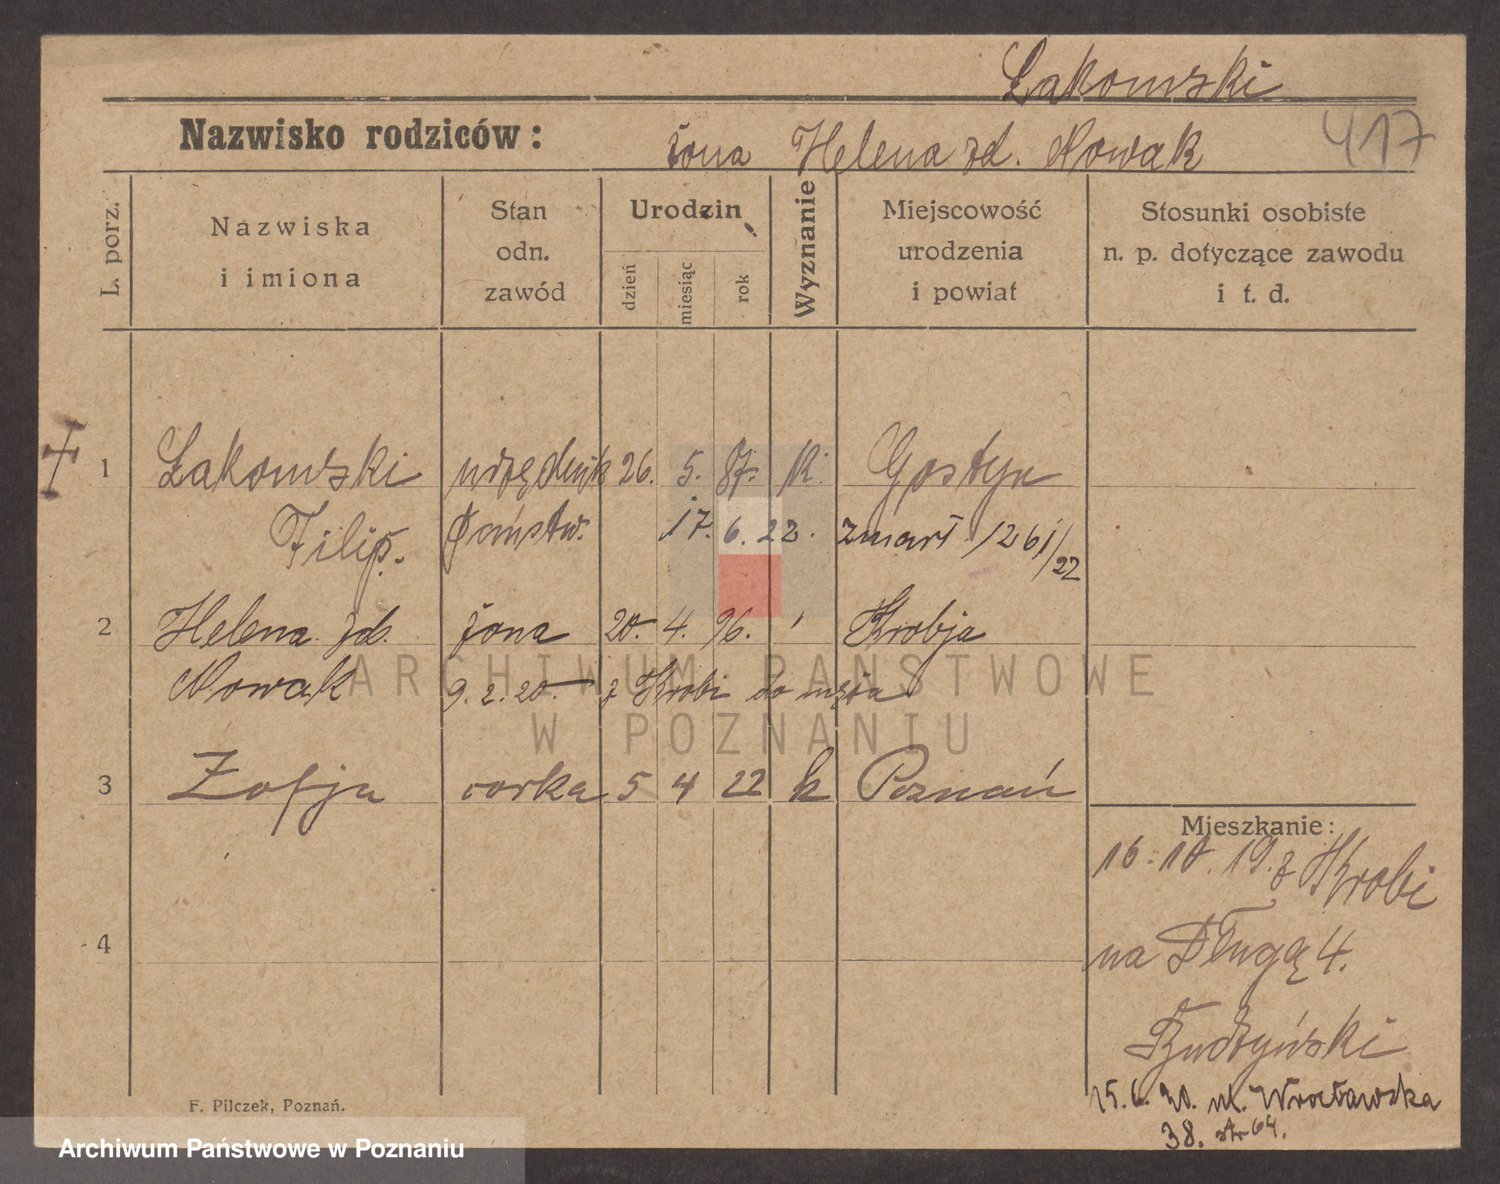 Łakomski
Nazwisko rodziców:
żona Helena zd. Nowak
417
L. porz.
Nazwiska
i imiona
Stan
odn.
zawód
Urodzin
dzień
miesiąc
rok
Wyznanie
Miejscowość
urodzenia
i powiat
Stosunki osobiste
n. p. dotyczące zawodu
i t. d.
1 Łakomski urzędnik 26. 5. 87. K. Gostyn
Filip. państw. 17. 6. 22. zmarł 1261/22
2 Helena zd. żona 20. 4. 96. ' Krobja
Nowak 9. 2. 20. z Krobi do męża
3 Zofja corka 5 4 22 k Poznań
4
Mieszkanie:
16.10.19. z Krobi
na Długą 4.
Budzyński
15. 6. 20. ul. Wrocławska
38. str 64.
F. Pilczek, Poznań.
ARCHIWUM PAŃSTWOWE
W POZNANIU
Archiwum Państwowe w Poznaniu